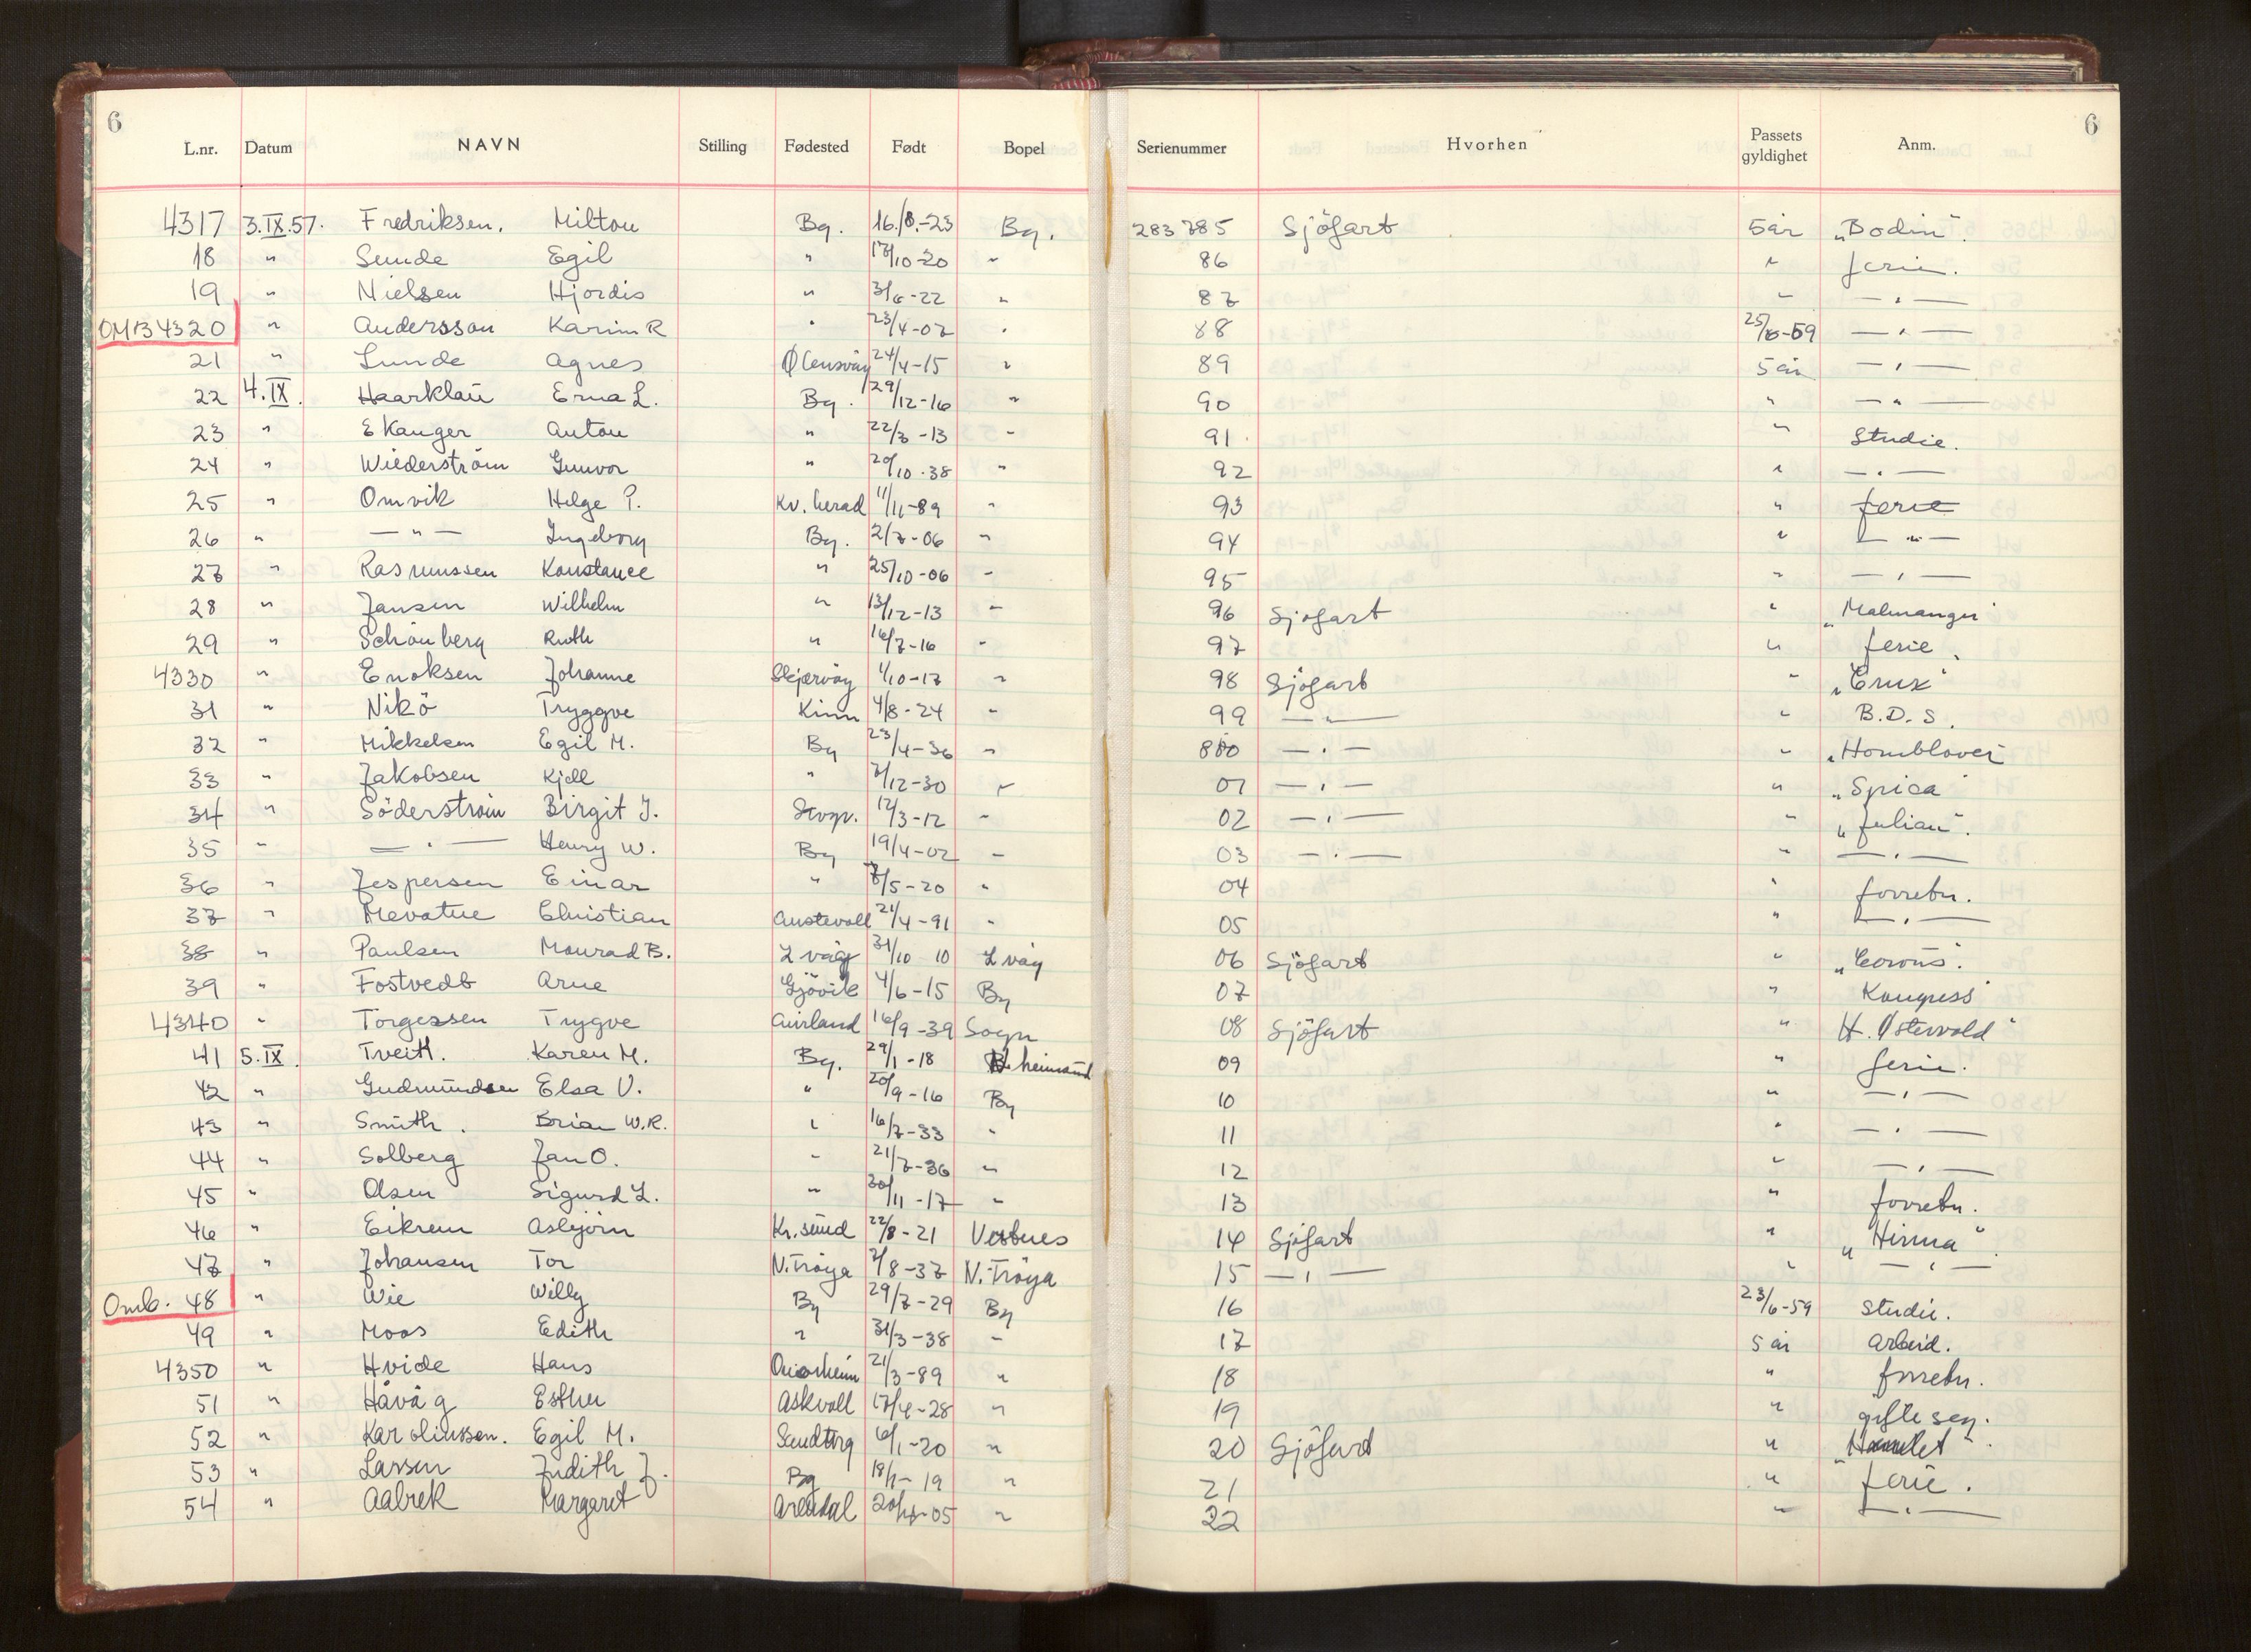 6 6
L.nr. Datum NAVN Stilling Fødested Født Bopel Serienummer Hvorhen Passets gyldighet Anm.
4317 3.IX.57. Fredriksen. Milton Bg. 16./8.-23 Bg. 283785 Sjöfart 5 år „Bodin“.
18 " Sunde Egil " 17/10-20 " 86 " ferie.
19 " Nielsen Hjördis " 3/6-22 " 87 " — " —
OMB 4320 " Andersson Karin R " 23/4-07 " 88 25/6-59 — " —
21 " Lunde Agnes Ølensvåg 24/4-15 " 89 5 år — " —
22 4.IX. Haarklau Erna L. Bg. 29/12-16 " 90 " — " —
23 " Ekanger Anton " 22/3-13 " 91 " Studie.
24 " Wiederström Gunvor " 20/10-38 " 92 " — " —
25 " Omvik Helge P. Kv.herad 11/11-89 " 93 " ferie
26 " — " — Ingeborg Bg. 2/7-06 " 94 " — " —
27 " Rasmussen Konstance " 25/10-06 " 95 " — " —
28 " Jansen Wilhelm " 13/12-13 " 96 Sjöfart " „Malmanger“
29 " Schönberg Ruth " 16/7-16 " 97 " ferie.
4330 " Enoksen Johanne Skjervöy 1/10-17 " 98 Sjöfart " „Crux“
31 " Nikö Tryggve Kinn 4/8-24 " 99 — " — " B.D.S.
32 " Mikkelsen Egil M. Bg 23/4-36 " 800 — " — " „Hornblower“
33 " Jakobsen Kjell " /12-30 " 01 — " — " „Spica“
34 " Söderström Birgit J. Stvgr. 12/3-12 " 02 — " — " „Julian“.
35 " — " — Henry W. Bg 19/4-02 " 03 — " — " — " —
36 " Jespersen Einar " 7/5-20 " 04 " forretn.
37 " Mevatne Christian Austevoll 21/4-91 " 05 " — " —
38 " Paulsen Monrad B. L våg 31/10 10 L våg 06 Sjöfart "
39 " Fostvedt Arne Gjövik 4/6-15 Bg 07 " Kongress
4340 " Torgersen Trygve Aurland 16/9-39 Sogn 08 Sjöfart " H. Østervold“
41 5.IX. Tveitt. Karen M. Bg. 29/1-18 N.heimsund 09 " ferie.
42 " Gudmundsen Elsa V. " 20/9-16 Bg 10 " — " —
43 " Smith. Brian W.R. " 16/7-33 " 11 " — " —
44 " Solberg Jan O. " 21/7-36 " 12 " — " —
45 " Olsen Sigurd L. " 30/11-17 " 13 " forretn.
46 " Eikrem Asbjörn Kr.sund 22/8-21 Vestnes 14 Sjöfart " „Hirma“.
47 " Johansen Tor N.Fröya 7/8-37 N.Fröya 15 — " — " — " —
Omb. 48 " Wie Willy Bg 29/7-29 Bg 16 23/6-59 Studie.
49 " Moos Edith " 31/3-38 " 17 5 år Arbeid.
4350 " Hvide Hans 21/3-89 " 18 " forretn.
51 " Håvåg Esther Askvoll 17/4-28 " 19 " gifte seg.
52 " Karoliussen. Egil M. Sandtorg 6/1-20 " 20 Sjöfart " „Hamlet“.
53 " Larsen Judith J. Bg 18/1-19 " 21 " ferie.
54 " Aabrek Margaret Arendal 20/ -05 " 22 " — " —